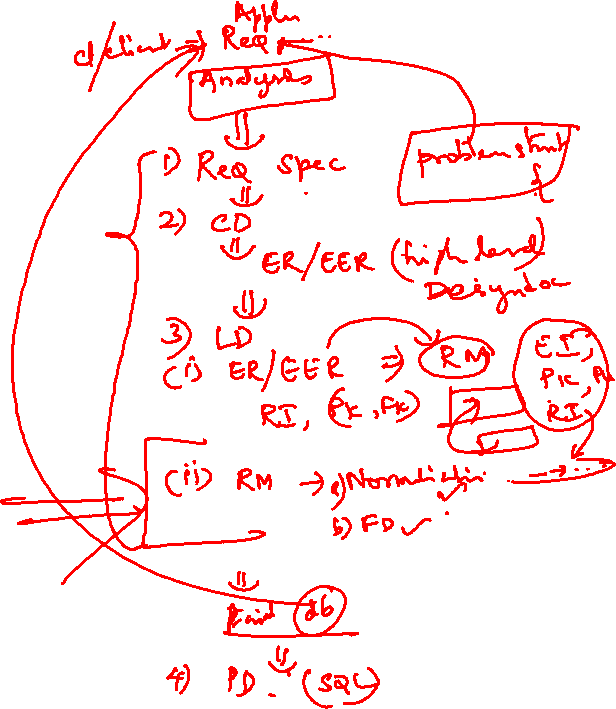 Appln
cl/client → Req ← ...
Analysis
problem stmt
1) Req Spec
2) CD
ER/EER (high level
Design doc
3) LD
(i) ER/EER ⇒ RM
RI, (PK, FK)
EI,
PK,
RI,
(ii) RM → a) Normalization
b) FD ✓
db
4) PD. (SQL)